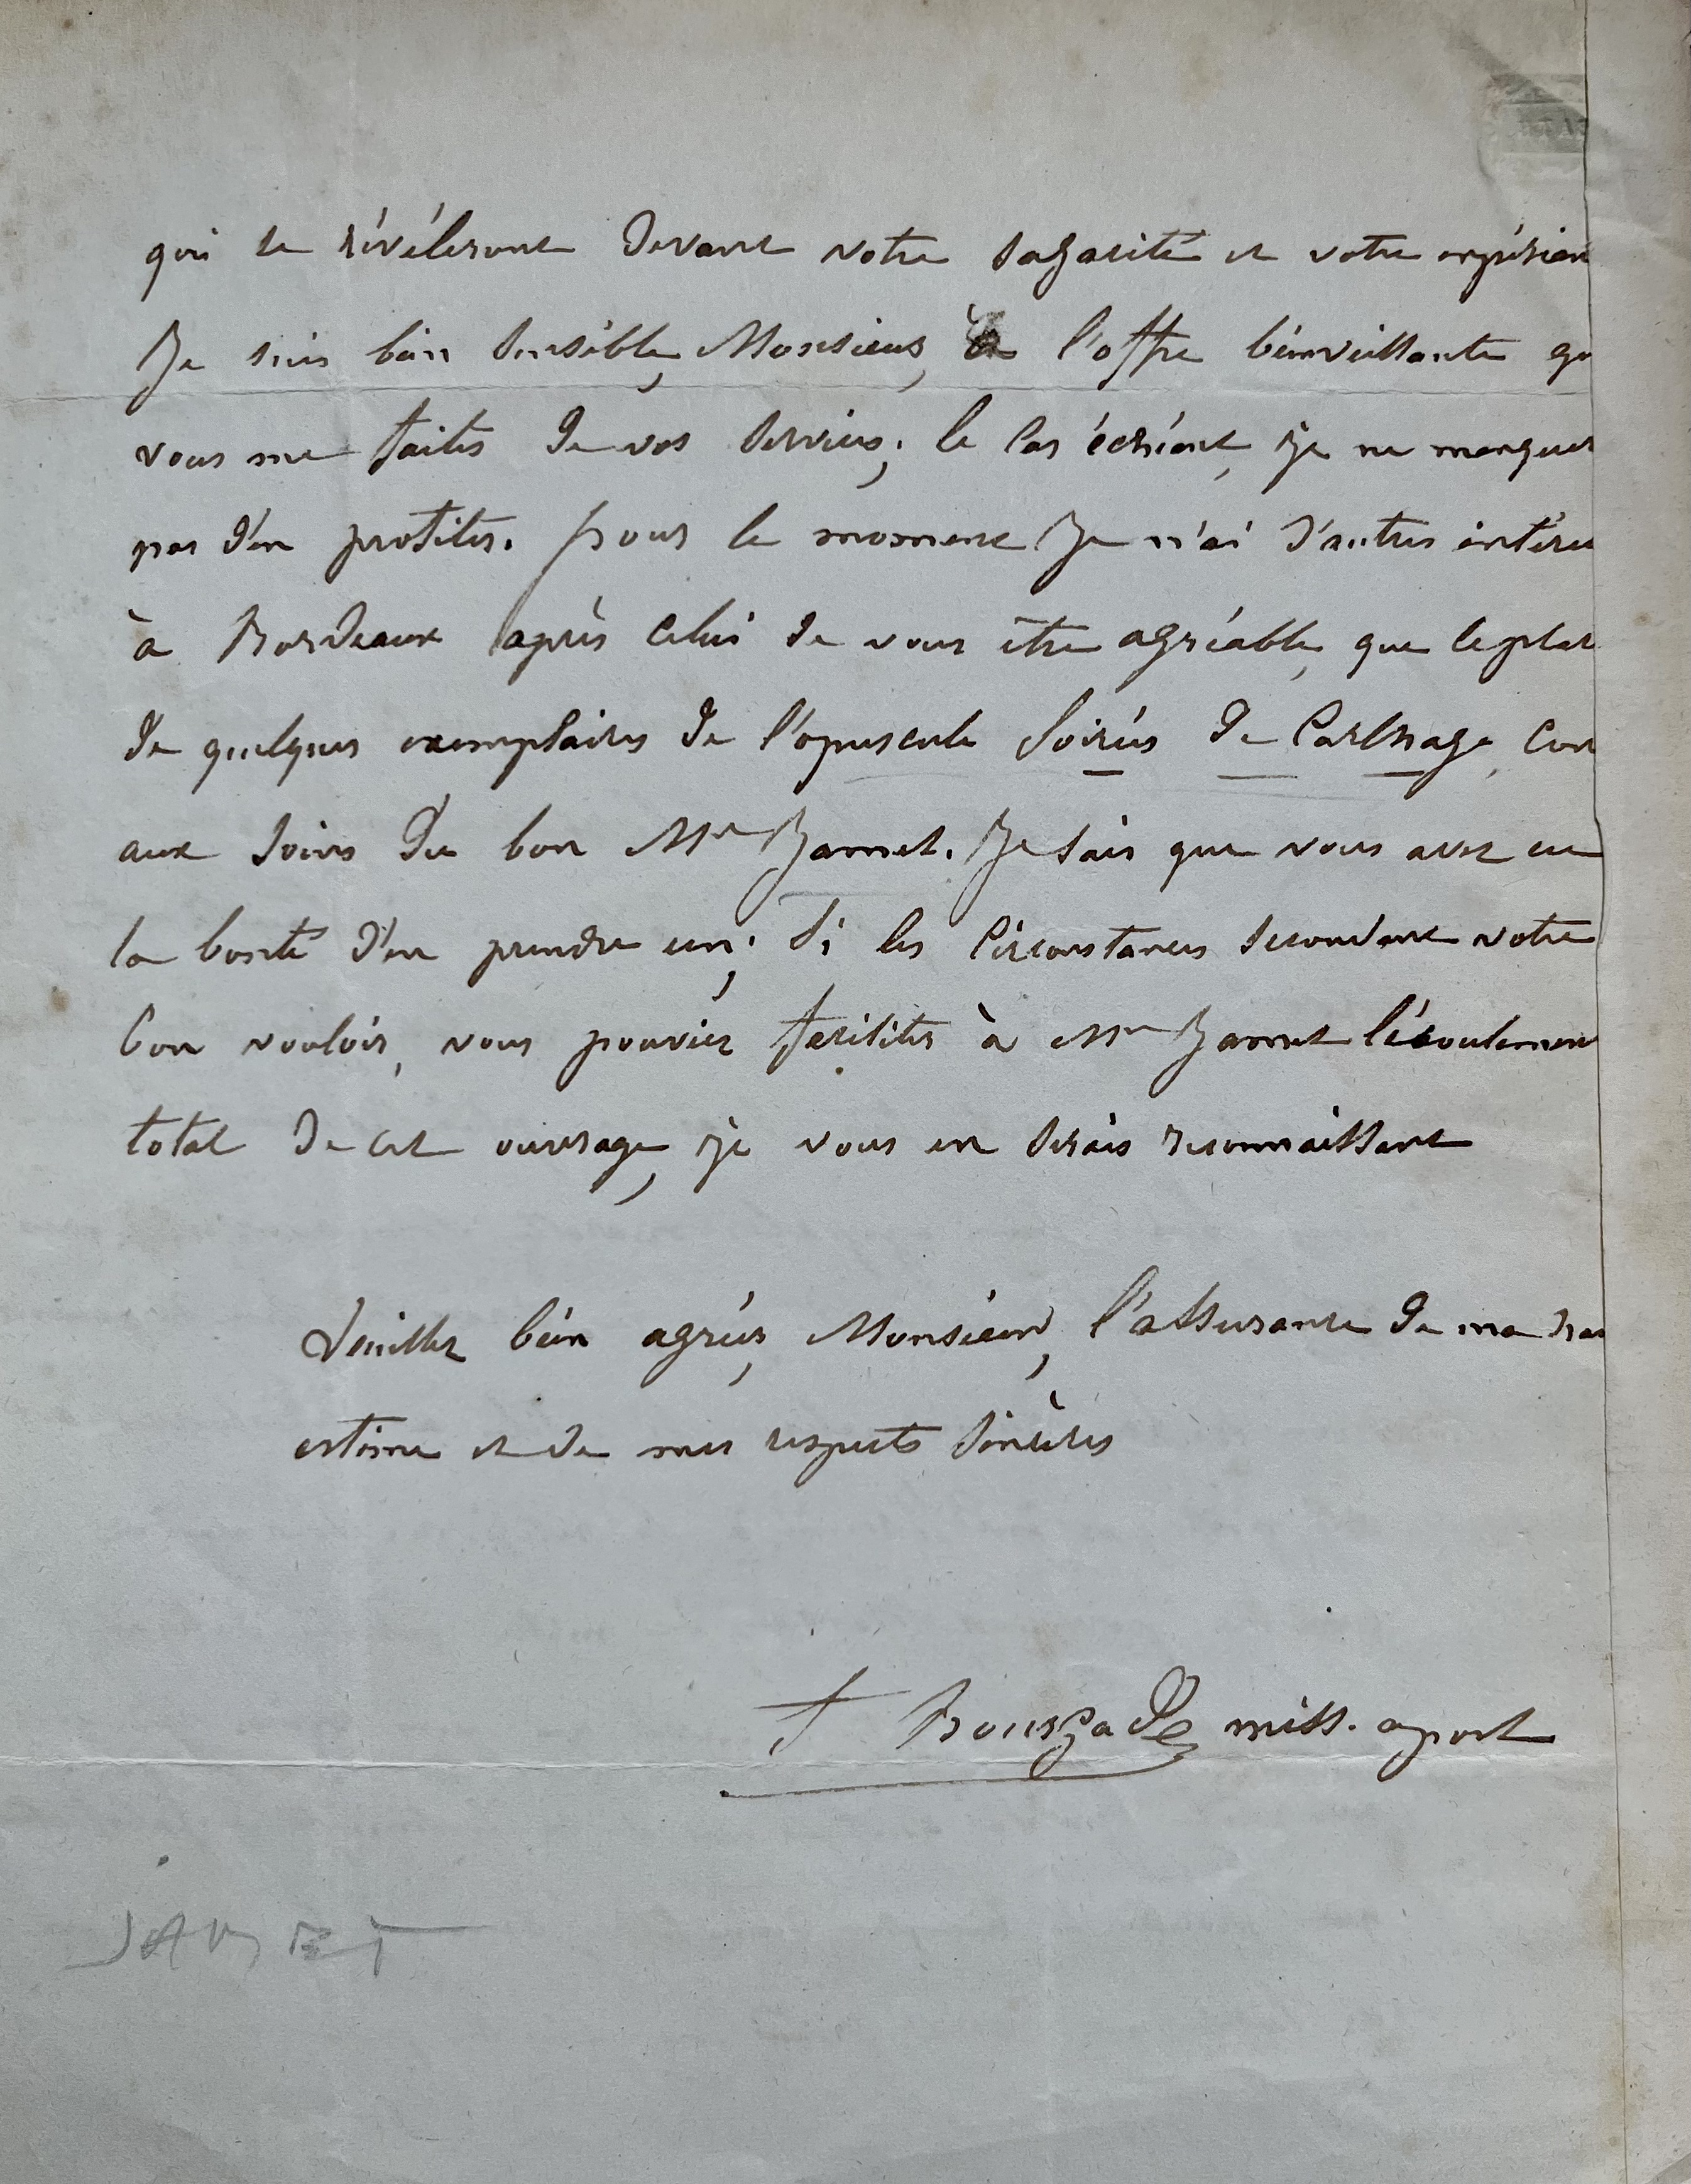 qui se révéleront devant votre sagacité et votre expérien
Je suis bien sensible, Monsieur, à l'offre bienveillante qu
vous me faites de vos services; le cas échéant, je ne manquer
pas d'en profiter. pour le moment je n'ai d'autres intérêt
à Bordeaux après celui de vous être agréable, que le plac
de quelques exemplaires de l'opuscule Soirées de Carthage, con
aux soins du bon Mr Jamet. Je sais que vous avez eu
la bonté d'en prendre un; Si les circonstances secondent votre
bon vouloir, vous pouviez faciliter à Mr Jamet l'écoulemen
total de cet ouvrage, je vous en serais reconnaissant
Veuillez bien agréer, Monsieur, l'assurance de ma hau
estime et de mes respects sincères
F Bourgade miss. apost
JAMET